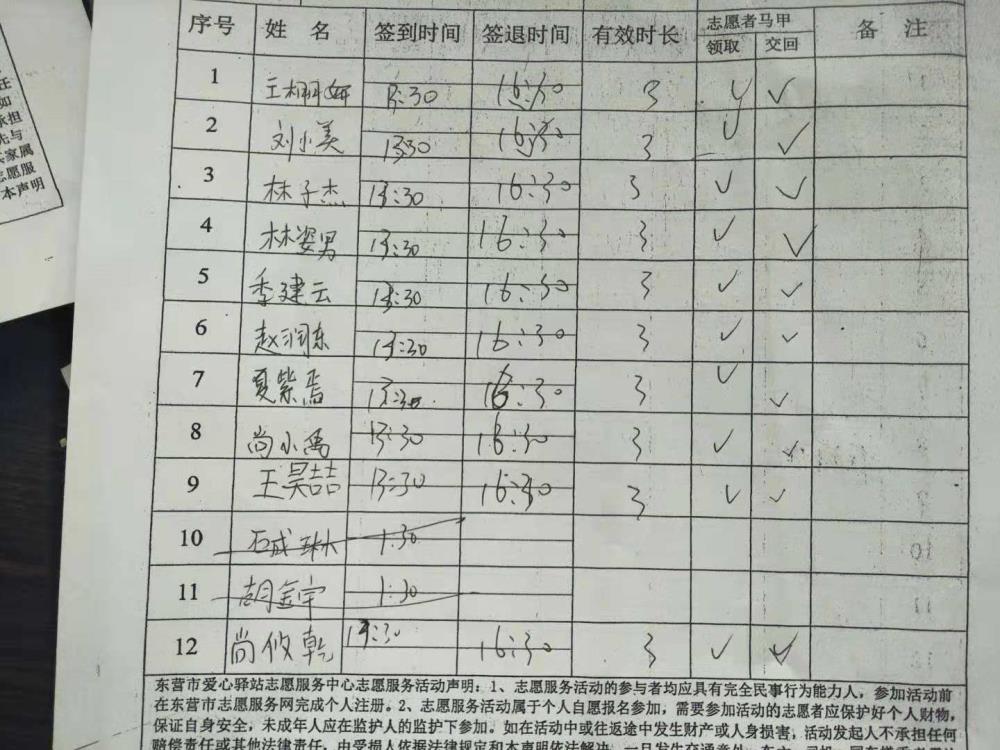 序号 姓名 签到时间 签退时间 有效时长 志愿者马甲 备注
领取 交回
1 王栩妍 13:30 16:30 3 ✓ ✓
2 刘小美 13:30 16:30 3 ✓ ✓
3 林子杰 13:30 16:30 3 ✓ ✓
4 林姿男 13:30 16:30 3 ✓ ✓
5 季建云 13:30 16:30 3 ✓ ✓
6 赵润东 13:30 16:30 3 ✓ ✓
7 夏紫焉 13:30 16:30 3 ✓ ✓
8 尚小禹 13:30 16:30 3 ✓ ✓
9 王昊喆 13:30 16:30 3 ✓ ✓
10 石成琳 1:30
11 胡金宇 1:30
12 尚攸乾 13:30 16:30 3 ✓ ✓
东营市爱心驿站志愿服务中心志愿服务活动声明:1、志愿服务活动的参与者均应具有完全民事行为能力人,参加活动前
在东营市志愿服务网完成个人注册。2、志愿服务活动属于个人自愿报名参加,需要参加活动的志愿者应保护好个人财物,
保证自身安全,未成年人应在监护人的监护下参加。如在活动中或往返途中发生财产或人身损害,活动发起人不承担任何
赔偿责任或其他法律责任,由受损人依据法律规定和本声明依法解决
任
如
承担
先与
家属
志愿服
本声明